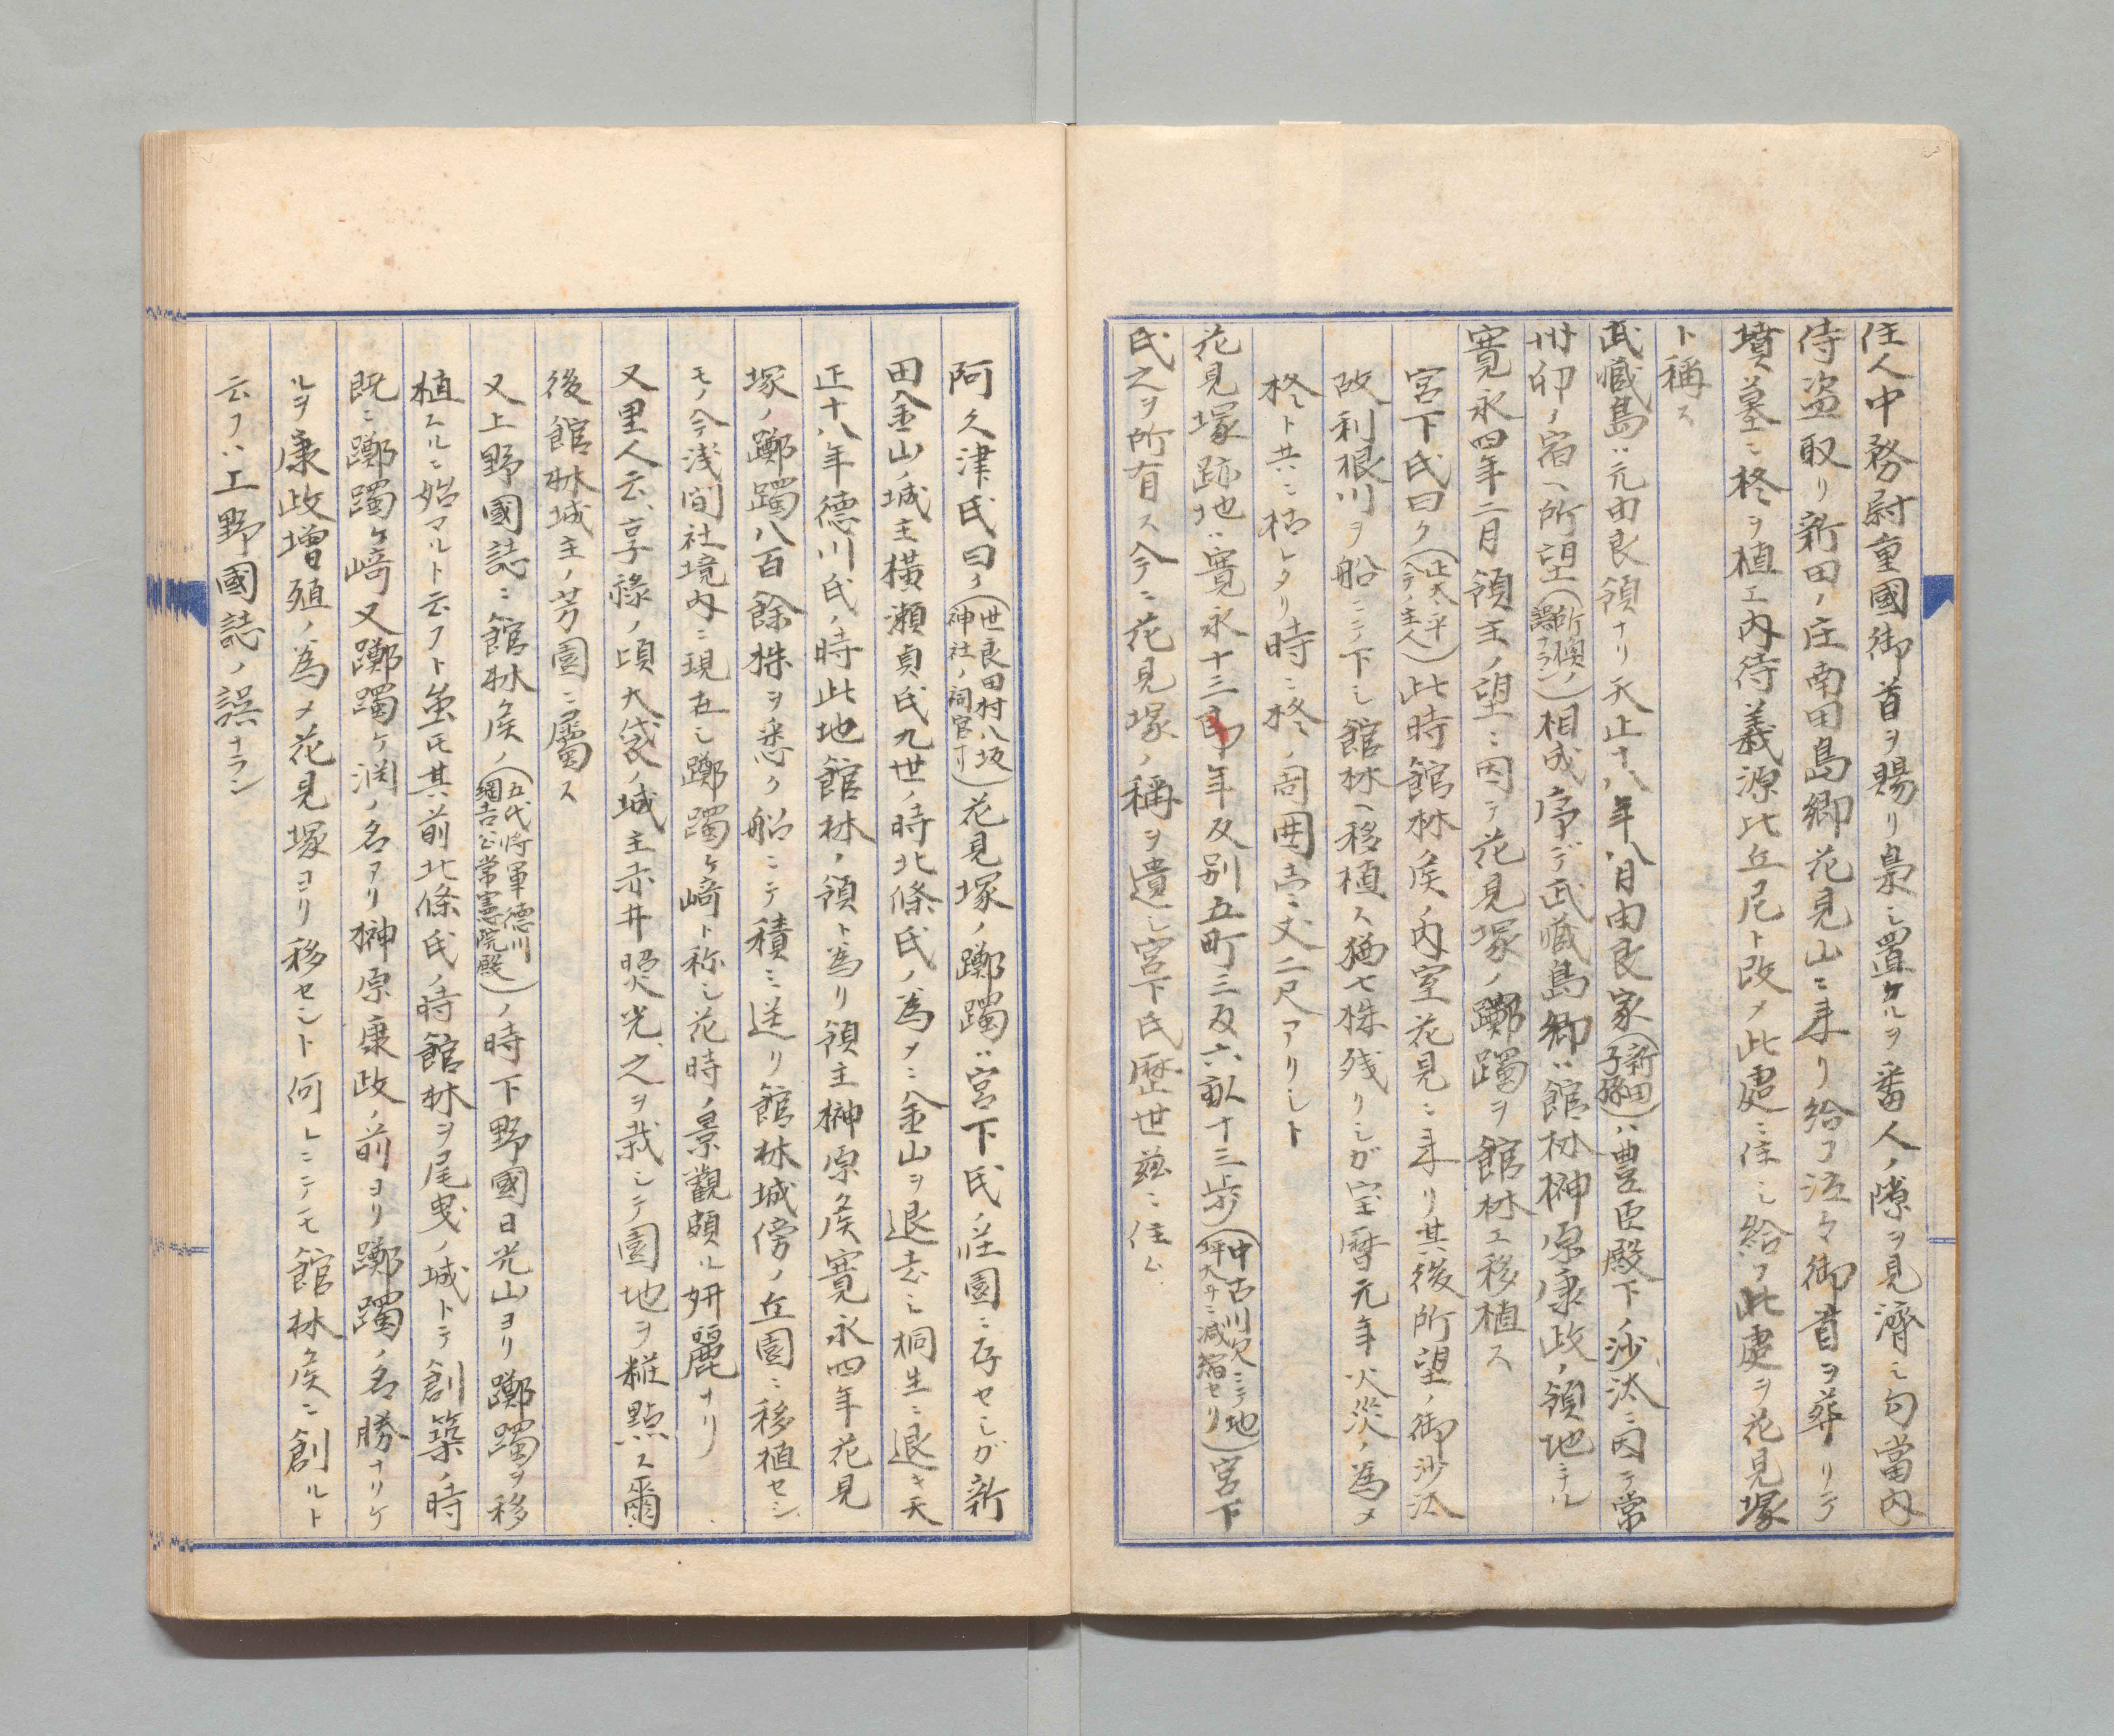 住人中務尉重國御首ヲ賜リ梟シ置ケルヲ番人ノ隙ヲ見濟シ勾當内
侍盗取リ新田ノ庄南田島郷花見山ニ来リ給フ泣々御首ヲ葬リテ
墳墓ニ柊ヲ植エ内待義源比丘尼ト改メ此處ニ住シ給フ此處ヲ花見塚
ト稱ス
武藏島ハ元由良領ナリ天正十八年八月由良家(新田子孫)ハ豊臣殿下ノ沙汰ニ因テ常
州卯ノ宿ヘ所望(所換ノ誤ナラン)相成序デ武藏島郷ハ館林榊原康政ノ領地ニナル
寛永四年二月領主ノ望ニ因テ花見塚ノ躑躅ヲ館林エ移植ス
宮下氏曰ク(正太平今テノ主人)此時館林侯ノ内室花見ニ来リ其後所望ノ御沙汰
故利根川ヲ船ニテ下シ館林ヘ移植ス猶七株残リシガ宝暦元年火災ノ為メ
柊ト共ニ枯レタリ時ニ柊ノ周囲壱丈二尺アリシト
花見塚跡地ハ寛永十三年反別五町三反六畝十三歩(中古川欠ニテ地坪大ヰニ減縮セリ)宮下
氏之ヲ所有ス今ニ花見塚ノ稱ヲ遺シ宮下氏歴世茲ニ住ム
阿久津氏曰ク(世良田村八坂神社ノ祠官ナリ)花見塚ノ躑躅ハ宮下氏ノ荘園ニ存セシガ新
田金山ノ城主横瀬貞氏九世ノ時北條氏ノ為メニ金山ヲ退去シ桐生ニ退キ天
正十八年德川氏ノ時此地館林ノ領ト為リ領主榊原侯寛永四年花見
塚ノ躑躅八百餘株ヲ悉ク船ニテ積ミ送リ館林城傍ノ丘園ニ移植セシ
モノ今浅間社境内ニ現在シ躑躅ヶ﨑ト称シ花時ノ景觀頗ル妍麗ナリ
又里人云享祿ノ頃大袋ノ城主赤井照光之ヲ栽シテ園地ヲ粧點ス爾
後館林城主ノ芳園ニ屬ス
又上野國誌ニ館林侯ノ(五代将軍德川綱吉公常憲院殿)ノ時下野國日光山ヨリ躑躅ヲ移
植スルニ始マルト云フト虽モ其前北條氏ノ時館林ヲ尾曳ノ城トテ創築ノ時
既ニ躑躅ヶ﨑又躑躅ヶ渕ノ名アリ榊原康政ノ前ヨリ躑躅ノ名勝ナリケ
ルヲ康政増殖ノ為メ花見塚ヨリ移セシト何レニテモ館林侯ニ創ルト
云フハ上野國誌ノ誤ナラン